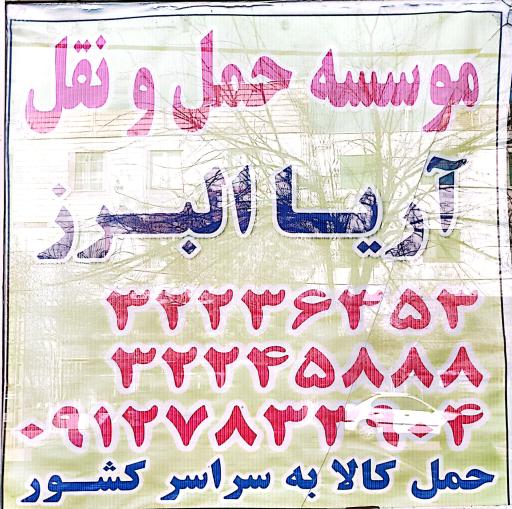 موسسه حمل و نقل
آریا البرز
۳۲۲۳۶۴۵۳
۳۲۲۴۵۸۸۸
۰۹۱۲۷۸۳۲۹۰۴
حمل کالا به سراسر کشور